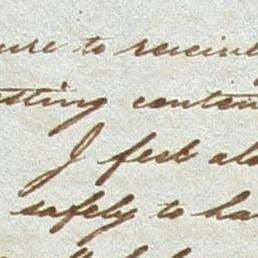 ure to receive
esting conten
I feel al
safely to ha